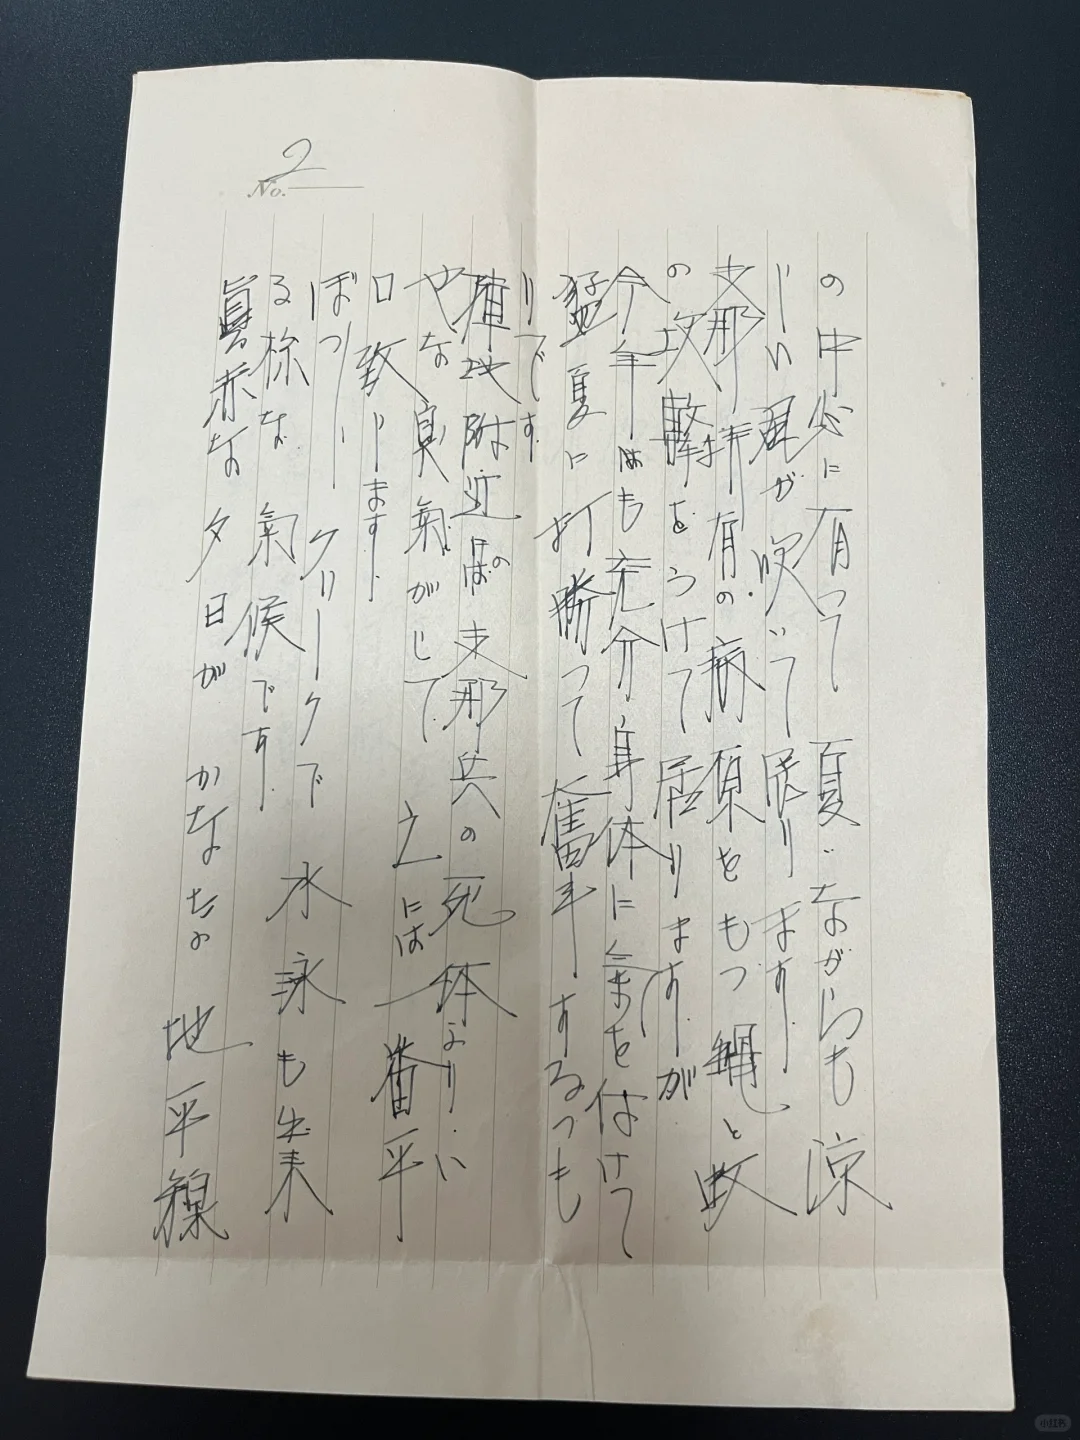 2
No.
の中心に有って夏ながらも涼
しい風が吹いて居ります
支那特有の病原をもつ蝿と蚊
の攻撃をうけて居りますが
今年はも充分身体に気を付けて
猛夏に打勝つて奮斗するつも
りです
陣地附近のには支那兵の死体よりい
やな臭氣がして之には一番平
口致します
ぼつーークリークで水泳も出来
る様な氣候です
真赤な夕日がかなたな地平線
小红书